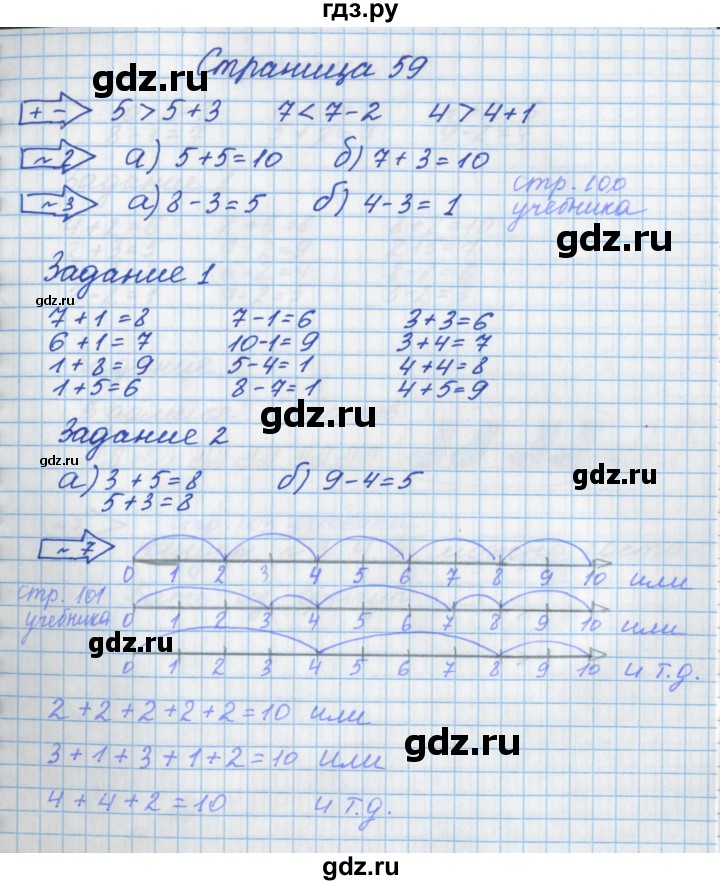 гдз.ру
Страница 59
gdz.ru
+ - 5 > 5 + 3 7 < 7 - 2 4 > 4 + 1
~ 2 а) 5 + 5 = 10 б) 7 + 3 = 10
gdz.ru
~ 3 а) 8 - 3 = 5 б) 4 - 3 = 1
стр. 100
учебника
gdz.ru
Задание 1
gdz.ru
7 + 1 = 8 7 - 1 = 6 3 + 3 = 6
6 + 1 = 7 10 - 1 = 9 3 + 4 = 7
1 + 8 = 9 5 - 4 = 1 4 + 4 = 8
1 + 5 = 6 8 - 7 = 1 4 + 5 = 9
gdz.ru
Задание 2
gdz.ru
а) 3 + 5 = 8 б) 9 - 4 = 5
5 + 3 = 8
gdz.ru
~ 7
0 1 2 3 4 5 6 7 8 9 10 или
стр. 101
учебника
0 1 2 3 4 5 6 7 8 9 10 или
gdz.ru
0 1 2 3 4 5 6 7 8 9 10 и т.д.
2 + 2 + 2 + 2 + 2 = 10 или
3 + 1 + 3 + 1 + 2 = 10 или
gdz.ru
4 + 4 + 2 = 10 и т.д.
гдз.ру